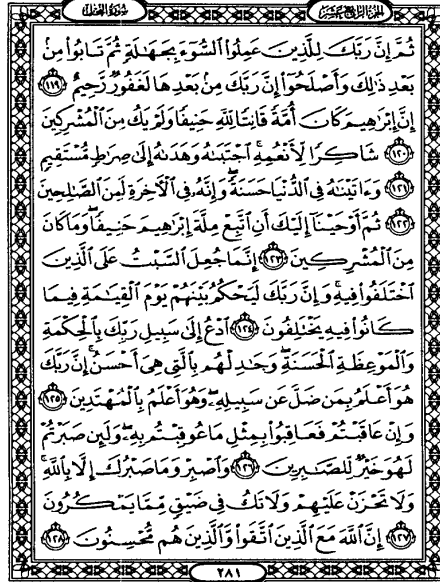 الجزء الرابع عشر سورة النحل
ثُمَّ إِنَّ رَبَّكَ لِلَّذِينَ عَمِلُوا۟ ٱلسُّوٓءَ بِجَهَـٰلَةٍ ثُمَّ تَابُوا۟ مِنۢ
بَعْدِ ذَٰلِكَ وَأَصْلَحُوٓا۟ إِنَّ رَبَّكَ مِنۢ بَعْدِهَا لَغَفُورٌ رَّحِيمٌ ١١٩
إِنَّ إِبْرَٰهِيمَ كَانَ أُمَّةً قَانِتًا لِّلَّهِ حَنِيفًا وَلَمْ يَكُ مِنَ ٱلْمُشْرِكِينَ
١٢٠ شَاكِرًا لِّأَنْعُمِهِ ۚ ٱجْتَبَىٰهُ وَهَدَىٰهُ إِلَىٰ صِرَٰطٍ مُّسْتَقِيمٍ
١٢١ وَءَاتَيْنَـٰهُ فِى ٱلدُّنْيَا حَسَنَةً ۖ وَإِنَّهُۥ فِى ٱلْـَٔاخِرَةِ لَمِنَ ٱلصَّـٰلِحِينَ
١٢٢ ثُمَّ أَوْحَيْنَآ إِلَيْكَ أَنِ ٱتَّبِعْ مِلَّةَ إِبْرَٰهِيمَ حَنِيفًا ۖ وَمَا كَانَ
مِنَ ٱلْمُشْرِكِينَ ١٢٣ إِنَّمَا جُعِلَ ٱلسَّبْتُ عَلَى ٱلَّذِينَ
ٱخْتَلَفُوا۟ فِيهِ ۚ وَإِنَّ رَبَّكَ لَيَحْكُمُ بَيْنَهُمْ يَوْمَ ٱلْقِيَـٰمَةِ فِيمَا
كَانُوا۟ فِيهِ يَخْتَلِفُونَ ١٢٤ ٱدْعُ إِلَىٰ سَبِيلِ رَبِّكَ بِٱلْحِكْمَةِ
وَٱلْمَوْعِظَةِ ٱلْحَسَنَةِ ۖ وَجَـٰدِلْهُم بِٱلَّتِى هِىَ أَحْسَنُ ۚ إِنَّ رَبَّكَ
هُوَ أَعْلَمُ بِمَن ضَلَّ عَن سَبِيلِهِۦ ۖ وَهُوَ أَعْلَمُ بِٱلْمُهْتَدِينَ ١٢٥
وَإِنْ عَاقَبْتُمْ فَعَاقِبُوا۟ بِمِثْلِ مَا عُوقِبْتُم بِهِۦ ۖ وَلَئِن صَبَرْتُمْ
لَهُوَ خَيْرٌ لِّلصَّـٰبِرِينَ ١٢٦ وَٱصْبِرْ وَمَا صَبْرُكَ إِلَّا بِٱللَّهِ ۚ
وَلَا تَحْزَنْ عَلَيْهِمْ وَلَا تَكُ فِى ضَيْقٍ مِّمَّا يَمْكُرُونَ
١٢٧ إِنَّ ٱللَّهَ مَعَ ٱلَّذِينَ ٱتَّقَوا۟ وَّٱلَّذِينَ هُم مُّحْسِنُونَ ١٢٨
٢٨١